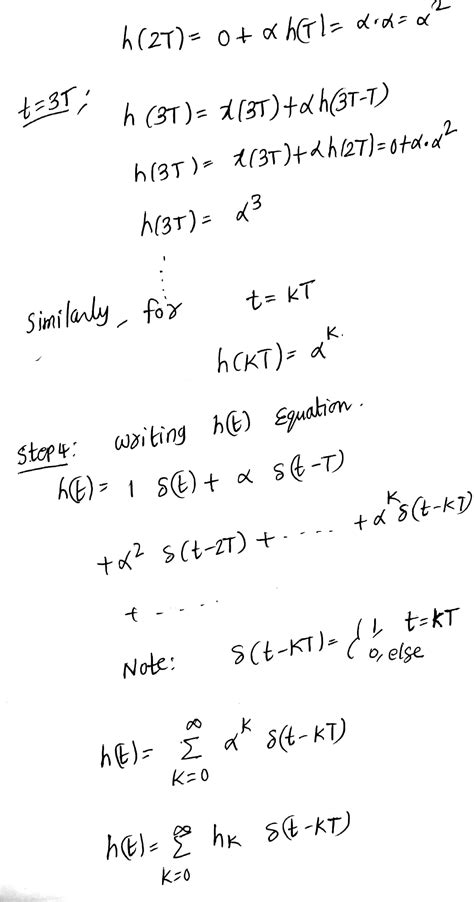 h(2T) = 0 + α h(T) = α·α = α²
t=3T; h(3T) = x(3T) + αh(3T-T)
h(3T) = x(3T) + αh(2T) = 0+α·α²
h(3T) = α³
Similarly, for t = KT
h(KT) = α^K.
Step4: writing h(t) Equation.
h(t) = 1 δ(t) + α δ(t-T)
+ α² δ(t-2T) + ..... + α^K δ(t-KT)
+ .....
Note: δ(t-KT) = { 1, t=KT
0, else
h(t) = ∞ΣK=0 α^K δ(t-KT)
h(t) = ∞ΣK=0 hK δ(t-KT)